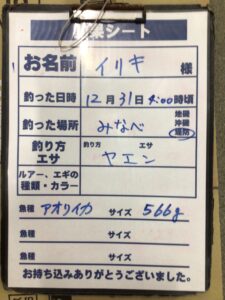 釣果シート
お名前 イリキ 様
釣った日時 12月31日 4:00時頃
釣った場所 みなべ 地磯 沖磯 堤防
釣り方 エサ 釣り方 ヤエン エサ
ルアー、エギの種類・カラー
魚種 アオリイカ サイズ 566g
魚種 サイズ
魚種 サイズ
お持ち込みありがとうございました。